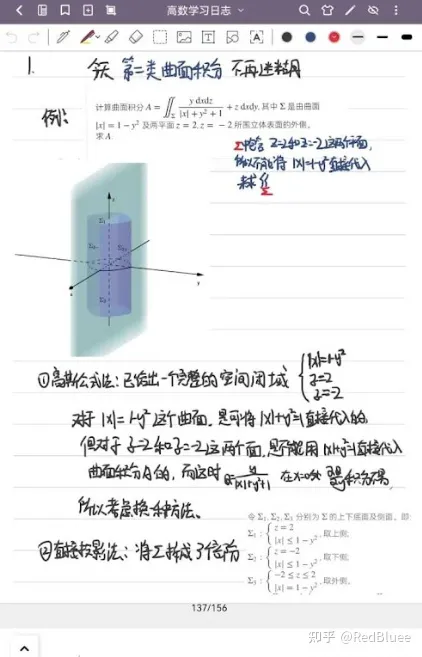 高数学习日志
1. 今天 第二类曲面积分 不再迷糊
例:
计算曲面积分 A = ∬_Σ y dxdz / (|x| + y² + 1) + z dxdy, 其中 Σ 是由曲面
|x| = 1 − y² 及两平面 z = 2, z = −2 所围立体表面的外侧。
求 A.
Σ中包含 z=2和z=-2这两个平面,
所以不能将 |x|=1-y² 直接代入
Σ₁
z
y
x
①高斯公式法: 已给出一个完整的空间闭域 { |x|=1-y²
z=2
z=-2
对于 |x|=1-y² 这个曲面, 是可将 |x|+y²=1直接代入的,
但对于 z=2和z=-2这两个面, 是不能用 |x|+y²=1直接代入
曲面积分A的, 而这时 在x=0处
所以考虑换一种方法.
令 Σ₁, Σ₂, Σ₃ 分别为 Σ 的上下底面及侧面, 即:
Σ₁ : { z = 2
|x| ≤ 1 − y² , 取上侧;
②直接投影法: 将Σ拆成了3个部分
Σ₂ : { z = −2
|x| ≤ 1 − y² , 取下侧;
Σ₃ : { −2 ≤ z ≤ 2
|x| = 1 − y² , 取外侧.
137/156
知乎 @RedBluee